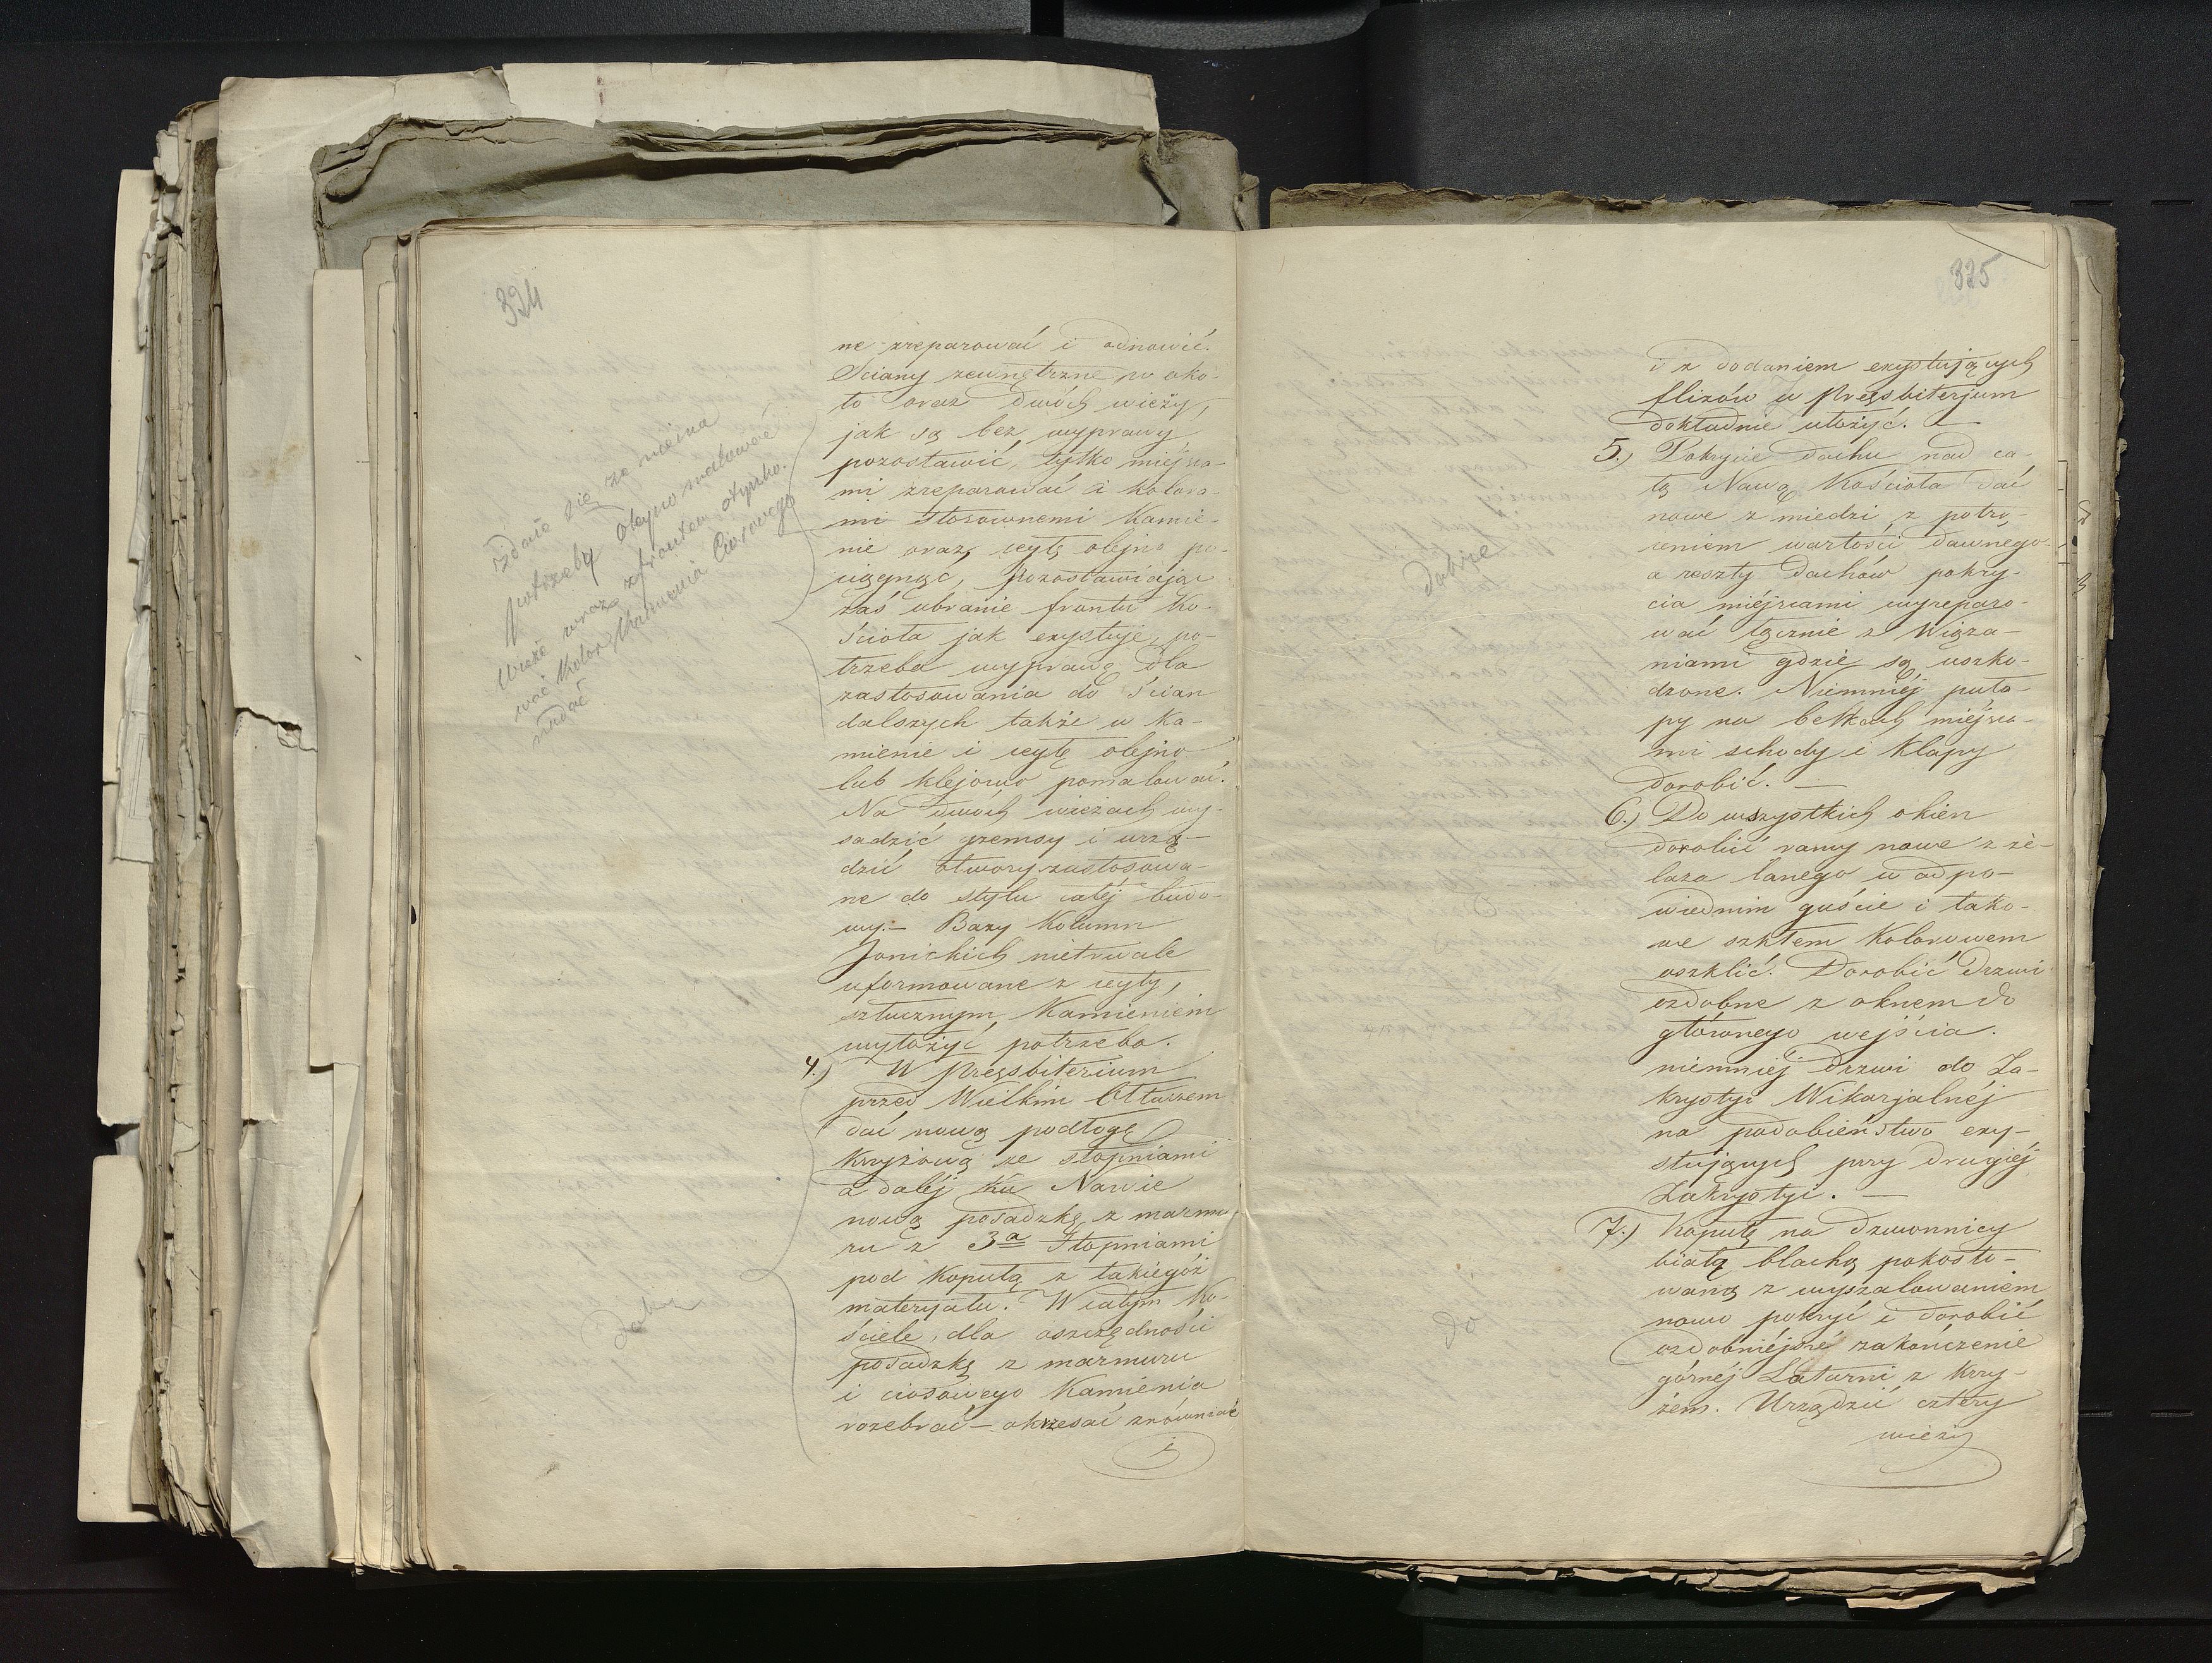 324
ne zreparować i odnowić.
Sciany zewnętrzne po oko-
ło oraz dwóch wieży,
jak są bez wyprawy
pozostawić, tylko miejsca-
mi zreparować i kolora-
mi stosownemi kamie-
nie oraz cegłę olejno po-
ciągnąć, pozostawiając
zaś ubranie frontu Ko-
ścioła jak exystuje, po-
trzeba wyprawę dla
zastosowania do ścian
dalszych także w ka-
mienie i cegłę olejno
lub klejowo pomalować.
Na dwóch wieżach wy-
sadzić gzemsy i urzą-
dzić otwory zastosowa-
ne do stylu całéj budo-
wy. – Bazy Kolumn
Jonickich nietrwale
uformowane z cegły,
sztucznym Kamieniem
wyłożyć potrzeba.
4.) W Pręsbiterium
przed Wielkim Ołtarzem
dać nową podłogę
krzyżową ze stopniami
a daléj ku Nawie
nową posadzkę z marmu
ru z 3ᵃ Stopniami
pod kopułą z takiegóż
materyału. W całym Ko-
ściele, dla oszczędności
posadzkę z marmuru
i ciosowego Kamienia
rozebrać – okrzesać zrównać
i
Zdaie się że niéma
potrzeby Oleyno malować
Wieże wraz z frontem otynko.
wać kolor kamienia Ciosowego
nadać
Dobrze
325
i z dodaniem exystujących
flizów w Pręsbiterjum
dokładnie ułożyć. —
5.) Pokrycie dachu nad ca-
łą Nawą Kościoła dać
nowe z miedzi, z potrą-
ceniem wartości dawnego
a reszty dachów pokry-
cia miéjscami wyreparo-
wać łącznie z Wiąza-
niami gdzie są uszko-
dzone. Niemniéj puła-
py na belkach miéjsca-
mi schody i klapy
dorobić. —
6.) Do wszystkich okien
dorobić ramy nowe z że-
laza lanego w odpo-
wiednim guście i tako-
we szkłem kolorowem
oszklić. Dorobić drzwi
ozdobne z oknem do
głównego wejścia.
niemniéj Drzwi do Za-
krystyi Wikarjalnéj
na podobieństwo exy-
stujących przy drugiéj
Zakrystyi. —
7.) Kopułę na dzwonnicy
białą blachą pokosto-
waną z wyszalowaniem
nowo pokryć i dorobić
ozdobniéjsné zakończenie
górnéj Latarni z Krzy-
żem. Urządzić cztery
wieży
dobrze
do